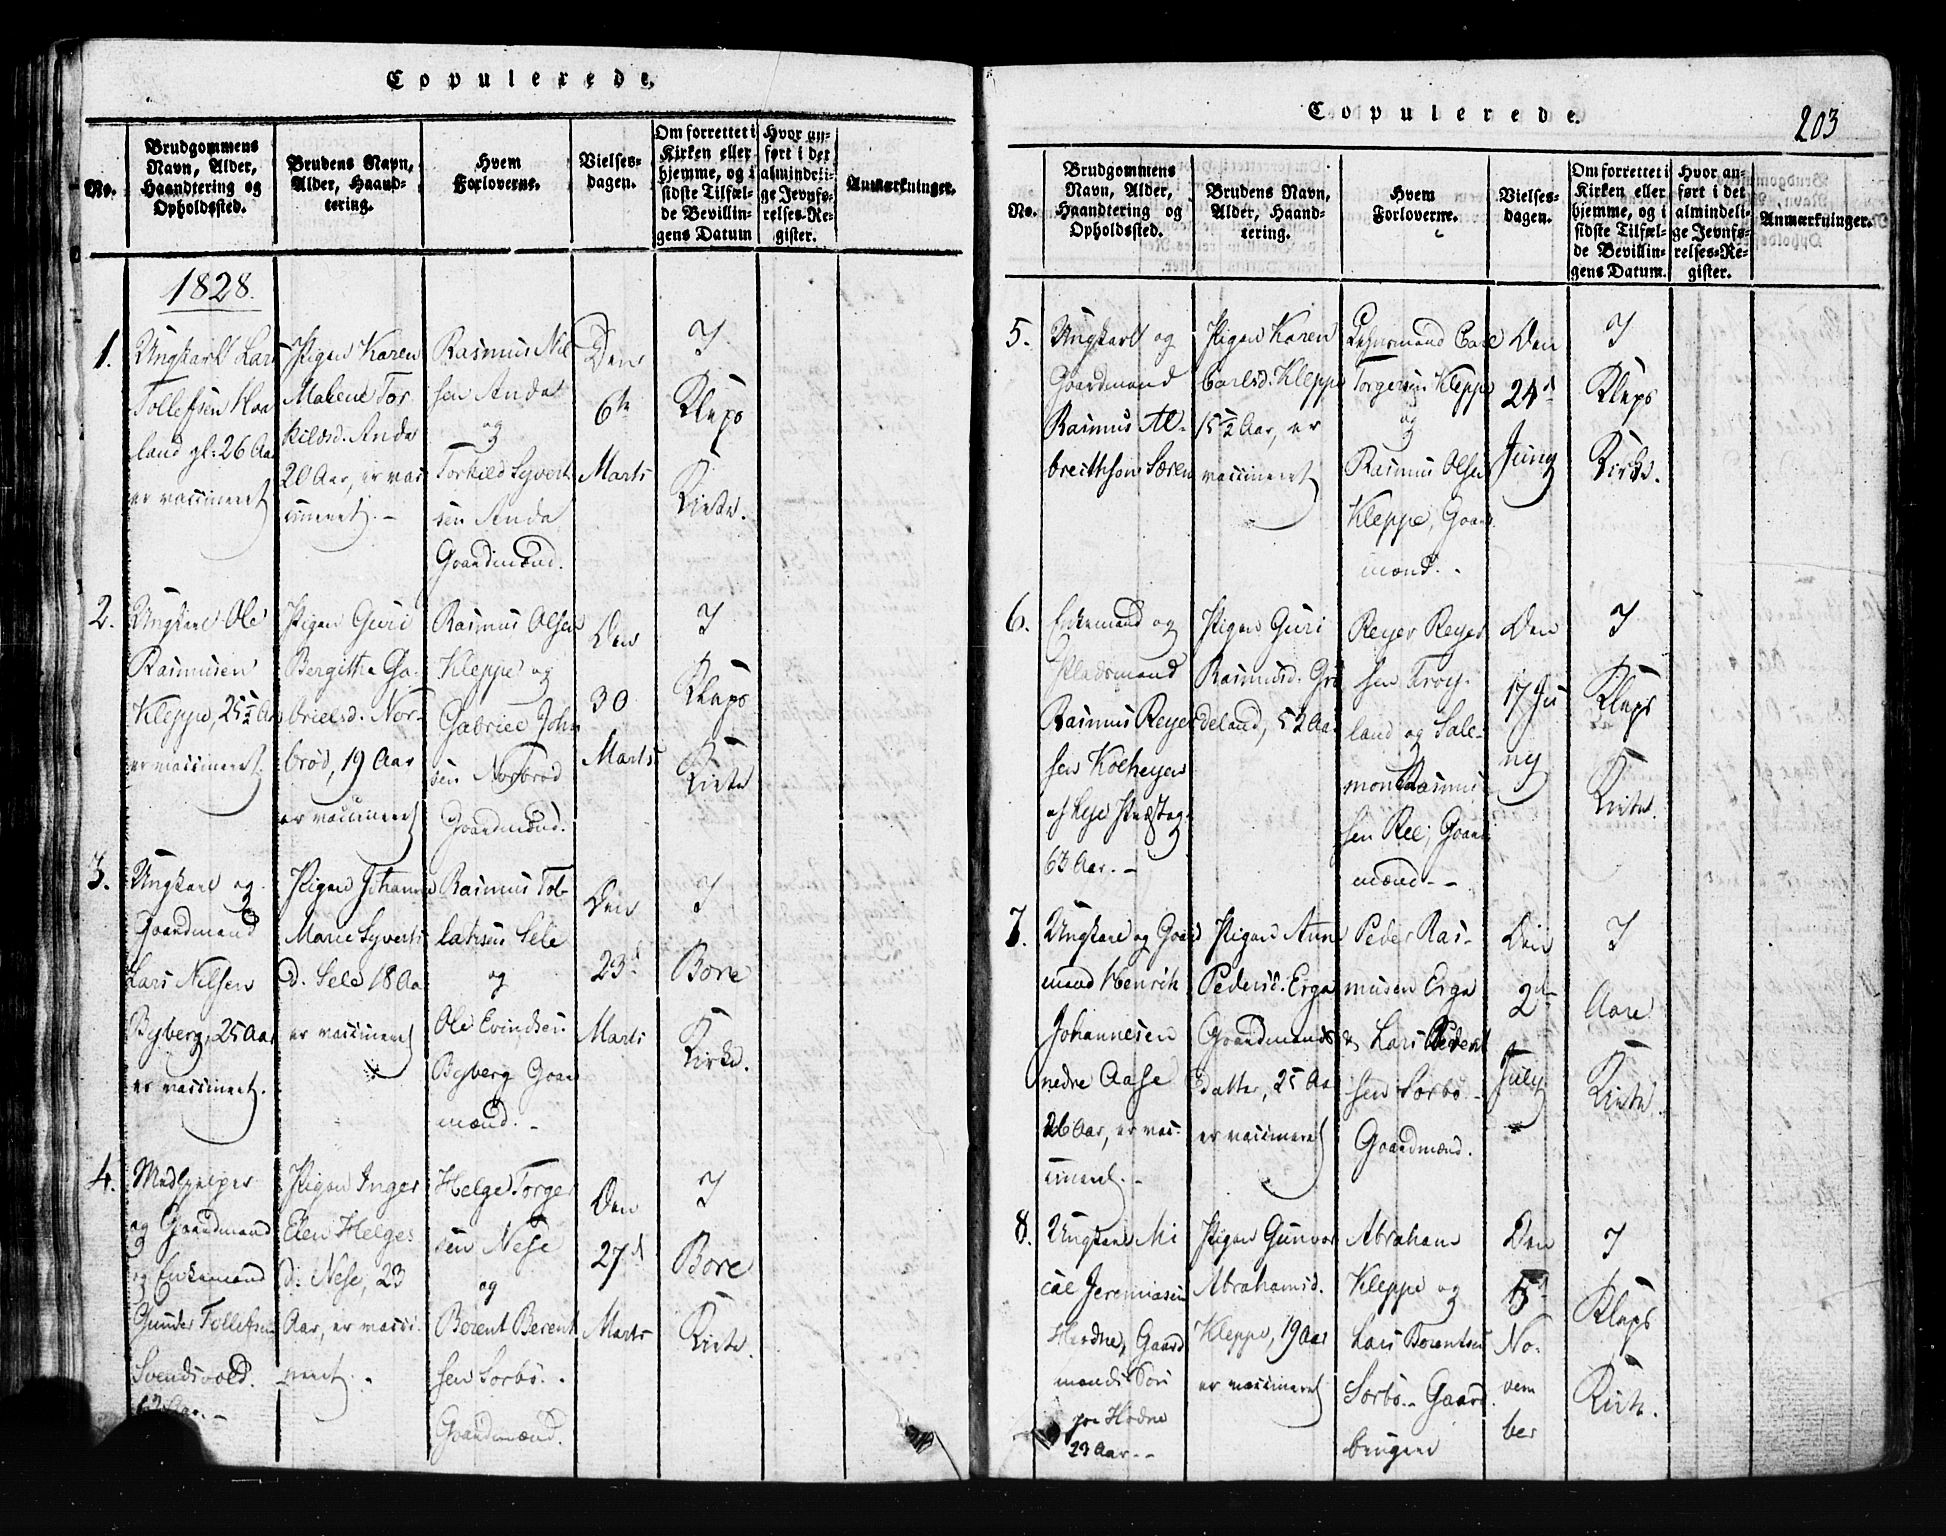 Copulerede.
No.
Brudgommens
Navn, Alder,
Haandtering og
Opholdssted.
Brudens Navn,
Alder, Haand-
tering.
Hvem
Forloverne.
Vielses-
dagen.
Om forrettet i
Kirken eller
hjemme, og i
sidste Tilfæl-
de Bevillin-
gens Datum
Hvor an-
ført i det
almindeli-
ge Jevnfø-
relses-Re-
gister.
Anmærkninger.
1828.
1.
Ungkarl Lars
Tollefsen Haa
land gl: 26 Aar
er vaccineret
Pigen Karen
Malene Tor
kildsd. Anda
20 Aar, er vac
cineret. -
Rasmus Niel
sen Anda
og
Torkild Syvert
sen Anda
Gaardmænd.
Den
6te
Marts
I
Kleps
Kirke.
2.
Ungkarl Ole
Rasmusen
Kleppe, 25½ Aar
er vaccineret.
Pigen Guri
Bergitha Ga-
brielsd. Nor-
brød, 19 Aar
er vaccineret
Rasmus Olsen
Kleppe og
Gabriel John
sen Norbrød
Gaardmænd.
Den
30
Marts
I
Kleps
Kirke
3.
Ungkarl og
Gaardmand
Lars Nilsen
Byberg, 25 Aar
er vaccineret.
Pigen Johanne
Marie Syverts
d. Sele 18 Aar
er vaccineret
Rasmus Tol-
laksen Sele
og
Ole Evindsen
Byberg Gaard
mænd. -
Den
23d
Marts
I
Bore
Kirke.
4.
Medhjelper
og Gaardmand
og Enkemand
Gunder Tollefsen
Svendsvold.
Aar. -
Pigen Inger
Elen Helges
d. Nese, 23
Aar, er vacci-
neret. -
Helge Torger
sen Nese
og
Berent Berent
sen Sorbø. -
Gaardmænd.
Den
27d
Marts
I
Bore
Kirke.
Copulerede.
203
No.
Brudgommens
Navn, Alder,
Haandtering og
Opholdssted.
Brudens Navn,
Alder, Haand-
tering.
Hvem
Forloverne.
Vielses-
dagen.
Om forrettet i
Kirken eller
hjemme, og i
sidste Tilfæl-
de Bevillin-
gens Datum.
Hvor an-
ført i det
almindeli-
ge Jevnfø-
relses-Re-
gister.
Anmærkninger.
5.
Ungkarl og
Gaardmand
Rasmus Al-
breithsen Særen
Pigen Karen
Carlsd. Kleppe
15½ Aar, er
vaccineret
Lehnsmand Carl
Torgersen Kleppe
og
Rasmus Olsen
Kleppe, Gaard
mænd. -
Den
24d
Juny
I
Kleps
Kirke.
6.
Enkemand og
Pladsmand
Rasmus Reyer
sen Kolheyen
af Lye Præsteg.
63 Aar. -
Pigen Guri
Rasmusd. Grø
deland, 52 Aar
Reyer Reyer
sen Frøy-
land og Sale-
mon Rasmus
sen Ree, Gaard
mænd. -
Den
17 Ju
ny
I
Kleps
Kirke.
7.
Ungkarl og Gaard
mand Henrik
Johannesen
nedre Aase
26 Aar, er vac-
cineret. -
Pigen Anne
Pedersd. Erga
Gaardmands
datter, 25 Aar
er vaccineret
Peder Ras-
musen Erga
& Lars Peder
sen Sorbø -
Gaardmænd.
Den
2den
July
I
Aare
Kirke.
8.
Ungkarl Mi
cal Jeremiasen
Hodne, Gaard
mands Søn
paa Hodne
23 Aar. -
Pigen Gunvor
Abrahamsd.
Kleppe, 19 Aar
er vaccineret
Abraham
Kleppe og
Lars Berentsen
Sorbø - Gaard
brugere
Den
No-
vem
ber
I
Kleps
Kirke.